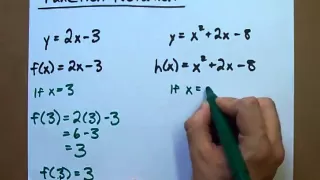 Function Notation
y = 2x - 3
f(x) = 2x - 3
If x = 3
f(3) = 2(3) - 3
= 6 - 3
= 3
f(3) = 3
y = x² + 2x - 8
h(x) = x² + 2x - 8
If x =